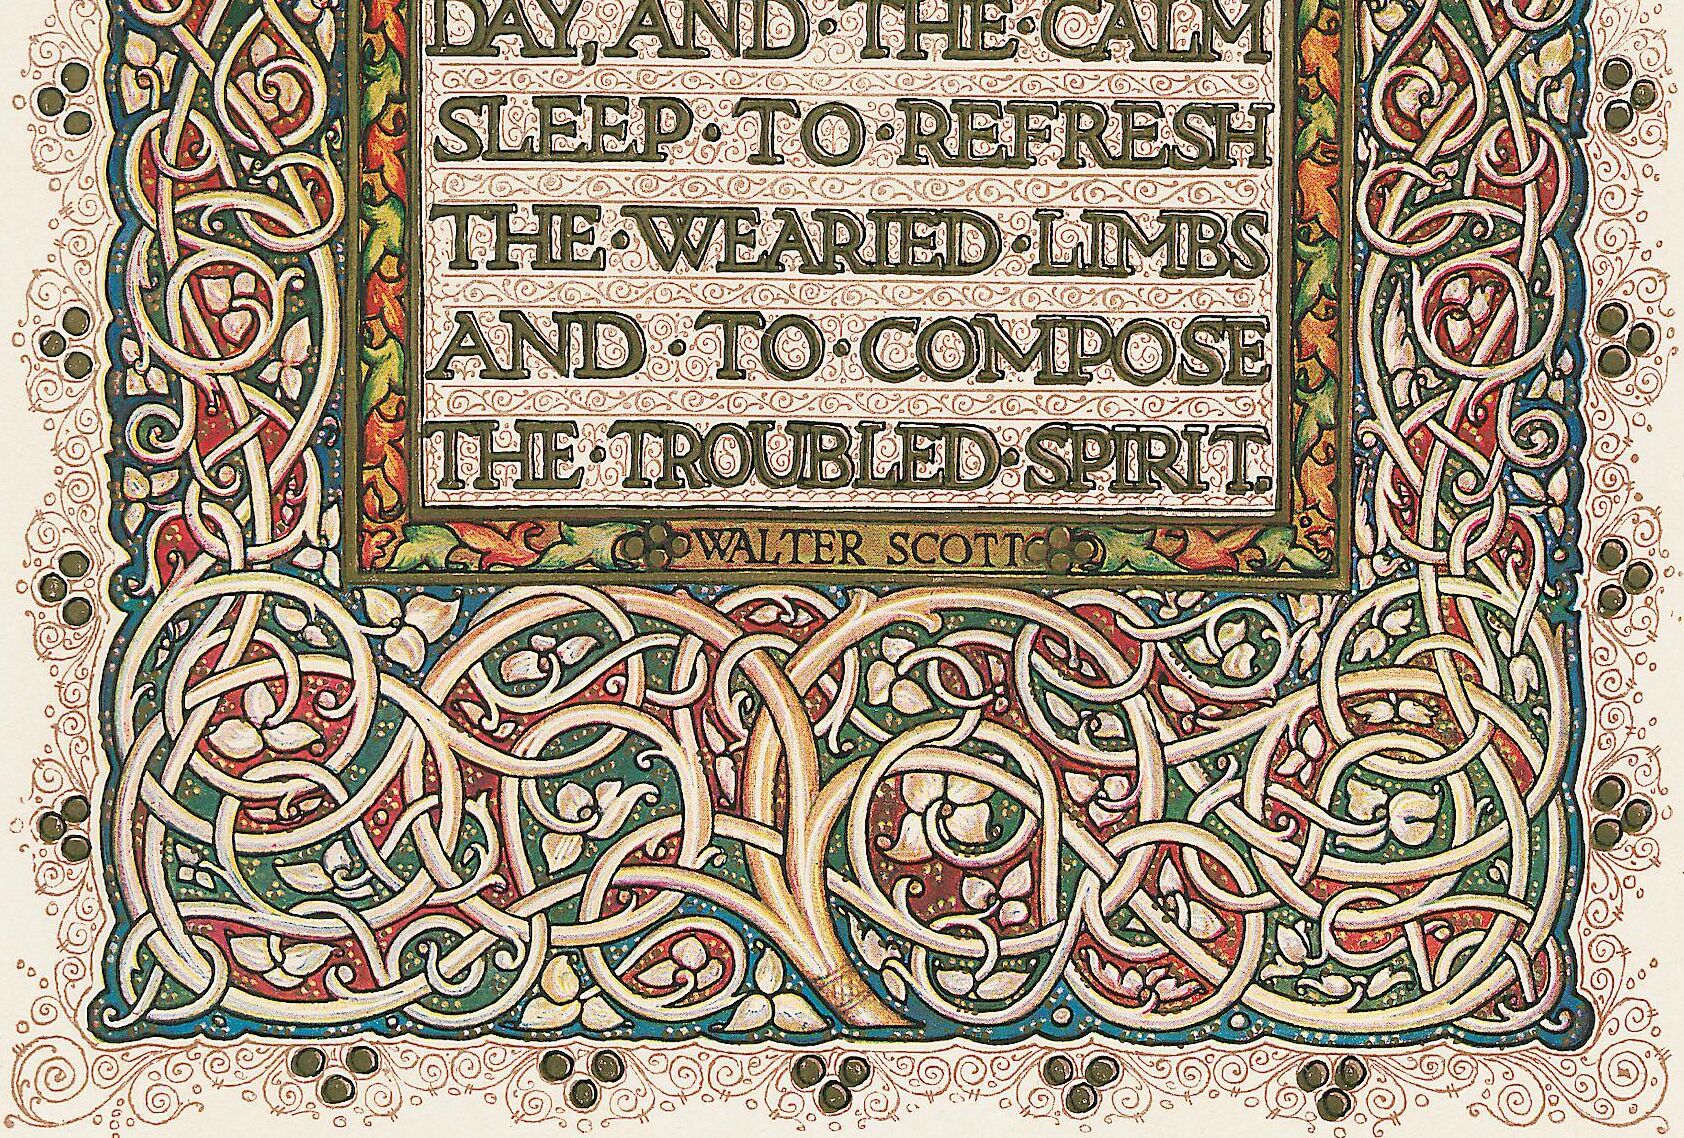 DAY, AND · THE · CALM
SLEEP · TO · REFRESH
THE · WEARIED · LIMBS
AND · TO · COMPOSE
THE · TROUBLED · SPIRIT.
WALTER SCOTT